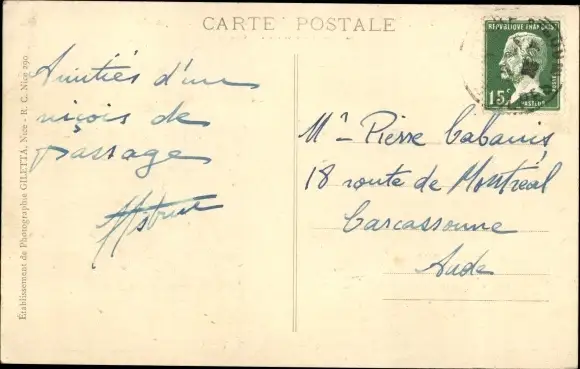 CARTE POSTALE
Amitiés d'un
niçois de
passage
Mr Pierre Cabanis,
18 route de Montréal
Carcassonne
Aude
REPUBLIQUE FRANÇAISE
15c
POSTES
PASTEUR
Établissement de Photographie GILETTA, Nice - R. C. Nice 290